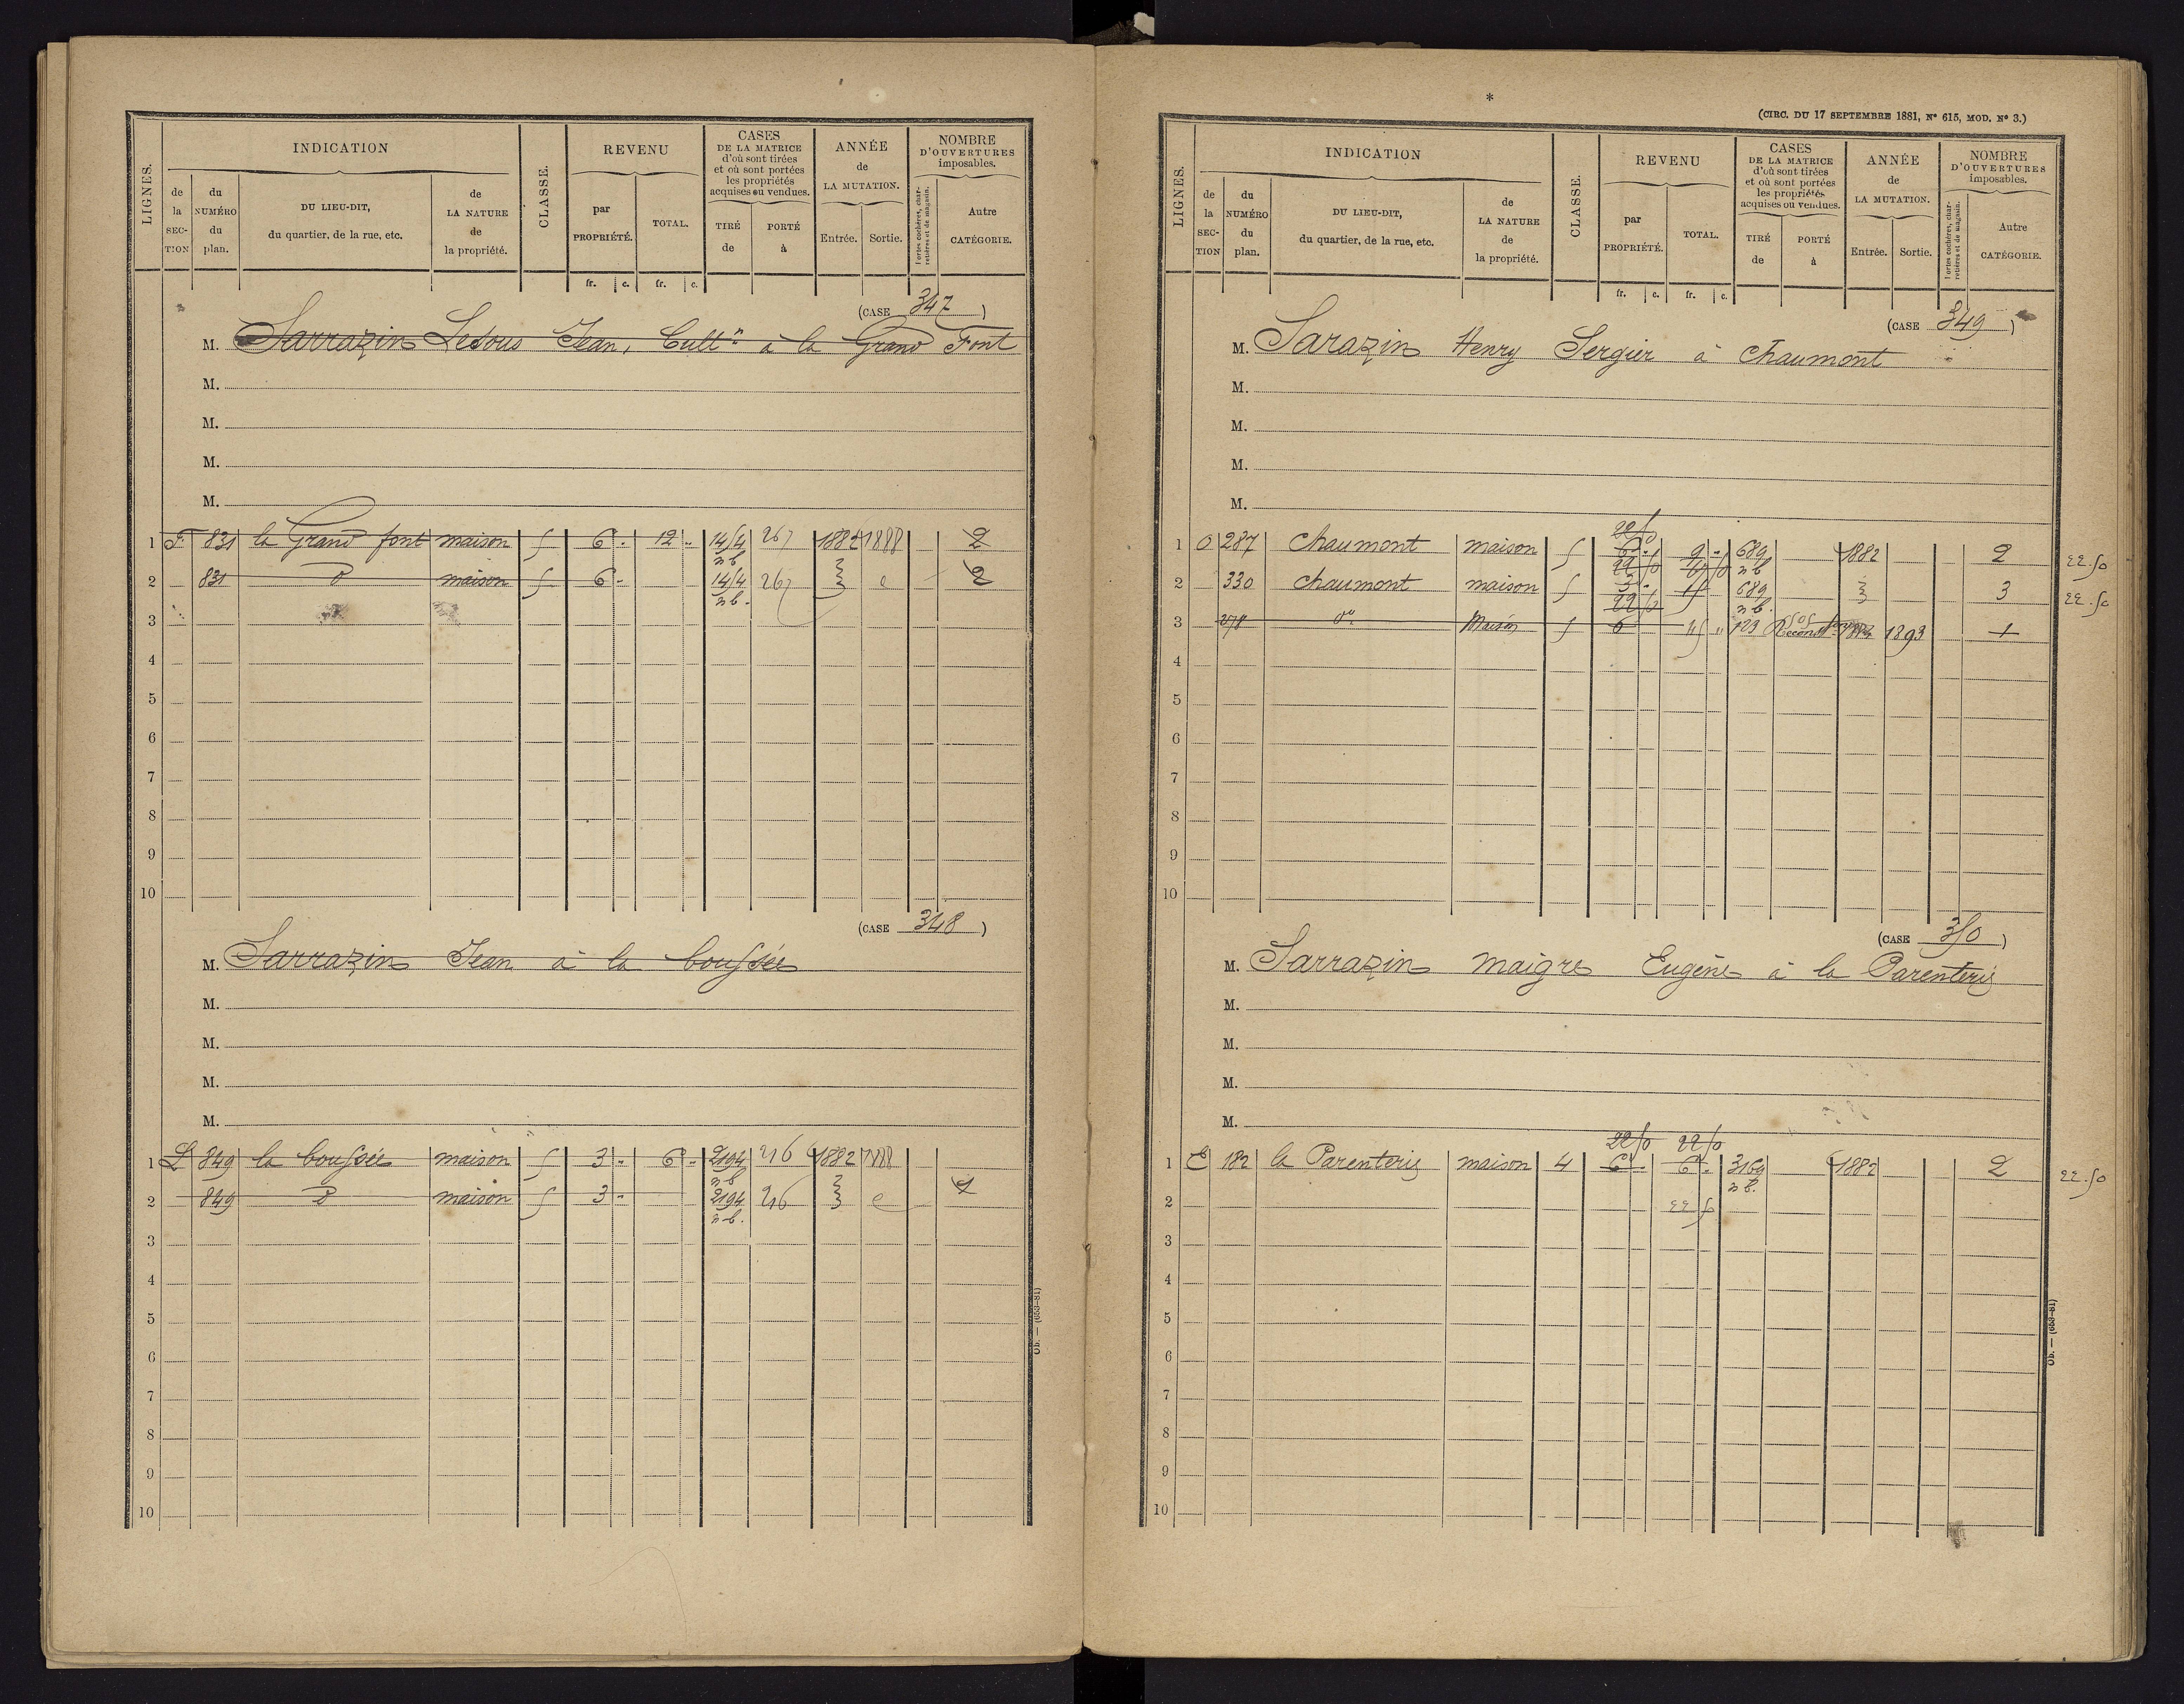 LIGNES.
INDICATION
de la SEC-TION
du NUMÉRO du plan.
DU LIEU-DIT, du quartier, de la rue, etc.
de LA NATURE de la propriété.
CLASSE.
REVENU
par PROPRIÉTÉ.
TOTAL.
fr. c. fr. c.
CASES DE LA MATRICE d'où sont tirées et où sont portées les propriétés acquises ou vendues.
TIRÉ de
PORTÉ à
ANNÉE de LA MUTATION.
Entrée. Sortie.
NOMBRE D'OUVERTURES imposables.
Portes cochères, charretières et de magasin.
Autre CATÉGORIE.
(CASE 347)
M. Sarrazin Ledous Jean, Cultr à la Grand Font
M.
M.
M.
M.
1 F 831 la Grand font maison 5 6 " 12 " 1454 267 1882 1888 2
n b
2 831 d maison 5 6 " 1454 267 2
n b.
3
4
5
6
7
8
9
10
(CASE 348)
M. Sarrazin Jean à la boussée
M.
M.
M.
M.
1 L 849 la boussée maison 5 3 " 6 " 2194 216 1882 1888
n b
2 849 d maison 5 3 " 2194 216 1
n b.
3
4
5
6
7
8
9
10
Ob. — (653-81)
*
(CIRC. DU 17 SEPTEMBRE 1881, N° 615, MOD. N° 3.)
LIGNES.
INDICATION
de la SEC-TION
du NUMÉRO du plan.
DU LIEU-DIT, du quartier, de la rue, etc.
de LA NATURE de la propriété.
CLASSE.
REVENU
par PROPRIÉTÉ.
TOTAL.
fr. c. fr. c.
CASES DE LA MATRICE d'où sont tirées et où sont portées les propriétés acquises ou vendues.
TIRÉ de
PORTÉ à
ANNÉE de LA MUTATION.
Entrée. Sortie.
NOMBRE D'OUVERTURES imposables.
Portes cochères, charretières et de magasin.
Autre CATÉGORIE.
(CASE 349)
M. Sarazin Henry Sergier à Chaumont
M.
M.
M.
M.
22 50
1 O 287 Chaumont maison 5 6 " 9 " 689 1882 2 22.50
22 50 n b
2 330 Chaumont maison 5 3 " 15 689 3 22.50
22 50 n b.
3 278 do Maison 5 6 15 " 123 1893 1
4
5
6
7
8
9
10
(CASE 350)
M. Sarrazin maigre Eugène à la Parenterie
M.
M.
M.
M.
22 50 22 50
1 E 182 la Parenterie maison 4 6 " 6 " 3169 1882 2 22.50
n b.
2 22 50
3
4
5
6
7
8
9
10
Ob. — (653-81)